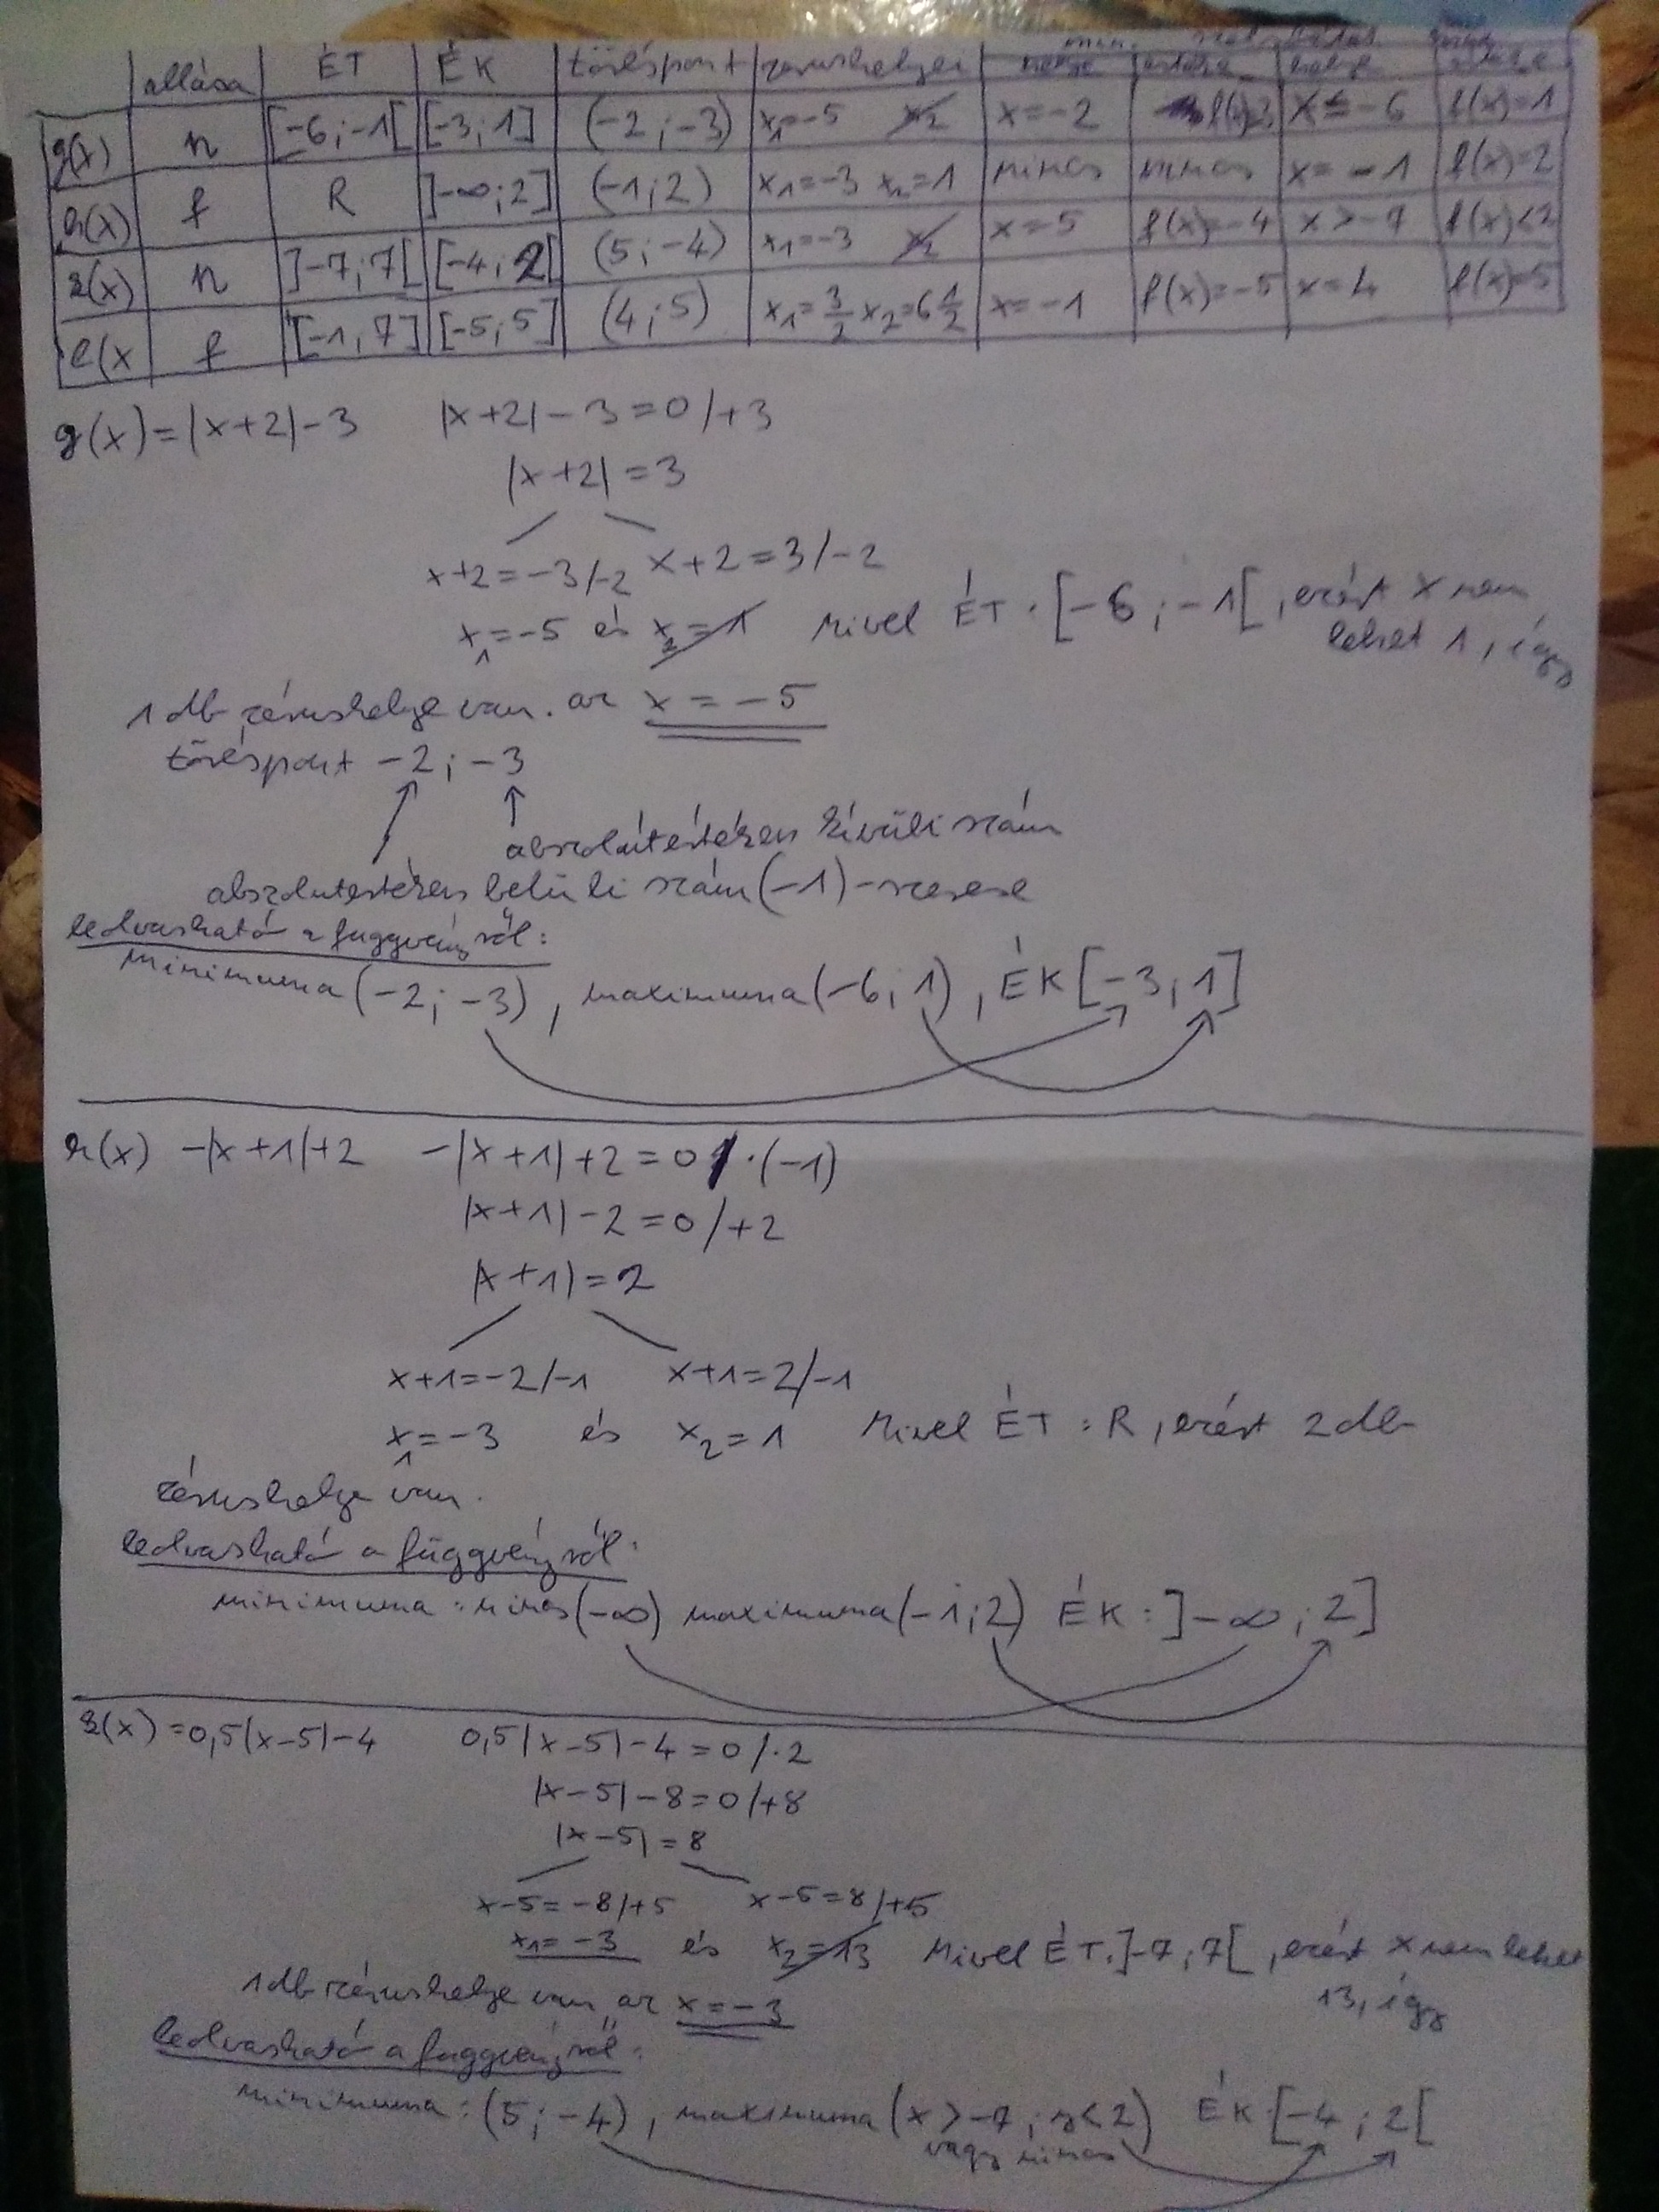 allása ÉT ÉK töréspont zérushelyei min. helye értéke helye
g(x) n [-6;-1[ [-3;1] (-2;-3) x₁=-5 x₂ x=-2 x=-6 f(x)=1
h(x) f R ]-∞;2] (-1;2) x₁=-3 x₂=1 nincs nincs x=-1 f(x)=2
k(x) n ]-7;7[ [-4;2[ (5;-4) x₁=-3 x₂ x=5 f(x)=-4 x>-7 f(x)<2
l(x f [-1;7] [-5;5] (4;5) x₁=3/2 x₂=6 1/2 x=-1 f(x)=-5 x=4 f(x)=5
g(x)=|x+2|-3 |x+2|-3=0/+3
|x+2|=3
x+2=-3/-2 x+2=3/-2
x₁=-5 és x₂=1 Mivel ÉT: [-6;-1[, ezért x nem
lehet 1, így
1 db zérushelye van. az x=-5
töréspont -2;-3
abszolútértéken kívüli szám
abszolutértéken belüli szám (-1)-szerese
leolvasható a függvényről:
minimuma (-2;-3), maximuma (-6;1), ÉK [-3;1]
h(x) -|x+1|+2 -|x+1|+2=0 /·(-1)
|x+1|-2=0/+2
|x+1|=2
x+1=-2/-1 x+1=2/-1
x₁=-3 és x₂=1 Mivel ÉT: R, ezért 2 db
zérushelye van.
leolvasható a függvényről:
minimuma: nincs (-∞) maximuma (-1;2) ÉK: ]-∞;2]
k(x)=0,5|x-5|-4 0,5|x-5|-4=0/·2
|x-5|-8=0/+8
|x-5|=8
x-5=-8/+5 x-5=8/+5
x₁=-3 és x₂=13 Mivel ÉT: ]-7;7[, ezért x nem lehet
13, így
1 db zérushelye van az x=-3
leolvasható a függvényről:
minimuma: (5;-4), maximuma (x>-7; y<2) ÉK [-4;2[
vagy nincs